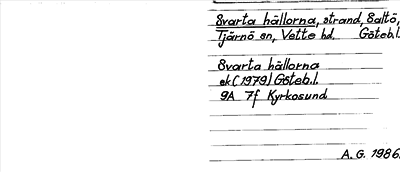 Svarta hällorna, strand, Saltö,
Tjärnö sn, Vette hd. Göteb.l.
Svarta hällorna
ek (1979) Göteb.l.
9A 7f Kyrkosund
A.G. 1986.